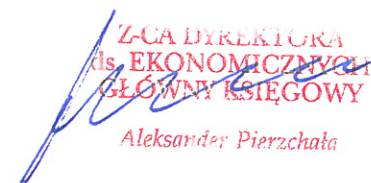 Z-CA DYREKTORA
ds. EKONOMICZNYCH
GŁÓWNY KSIĘGOWY
Aleksander Pierzchała